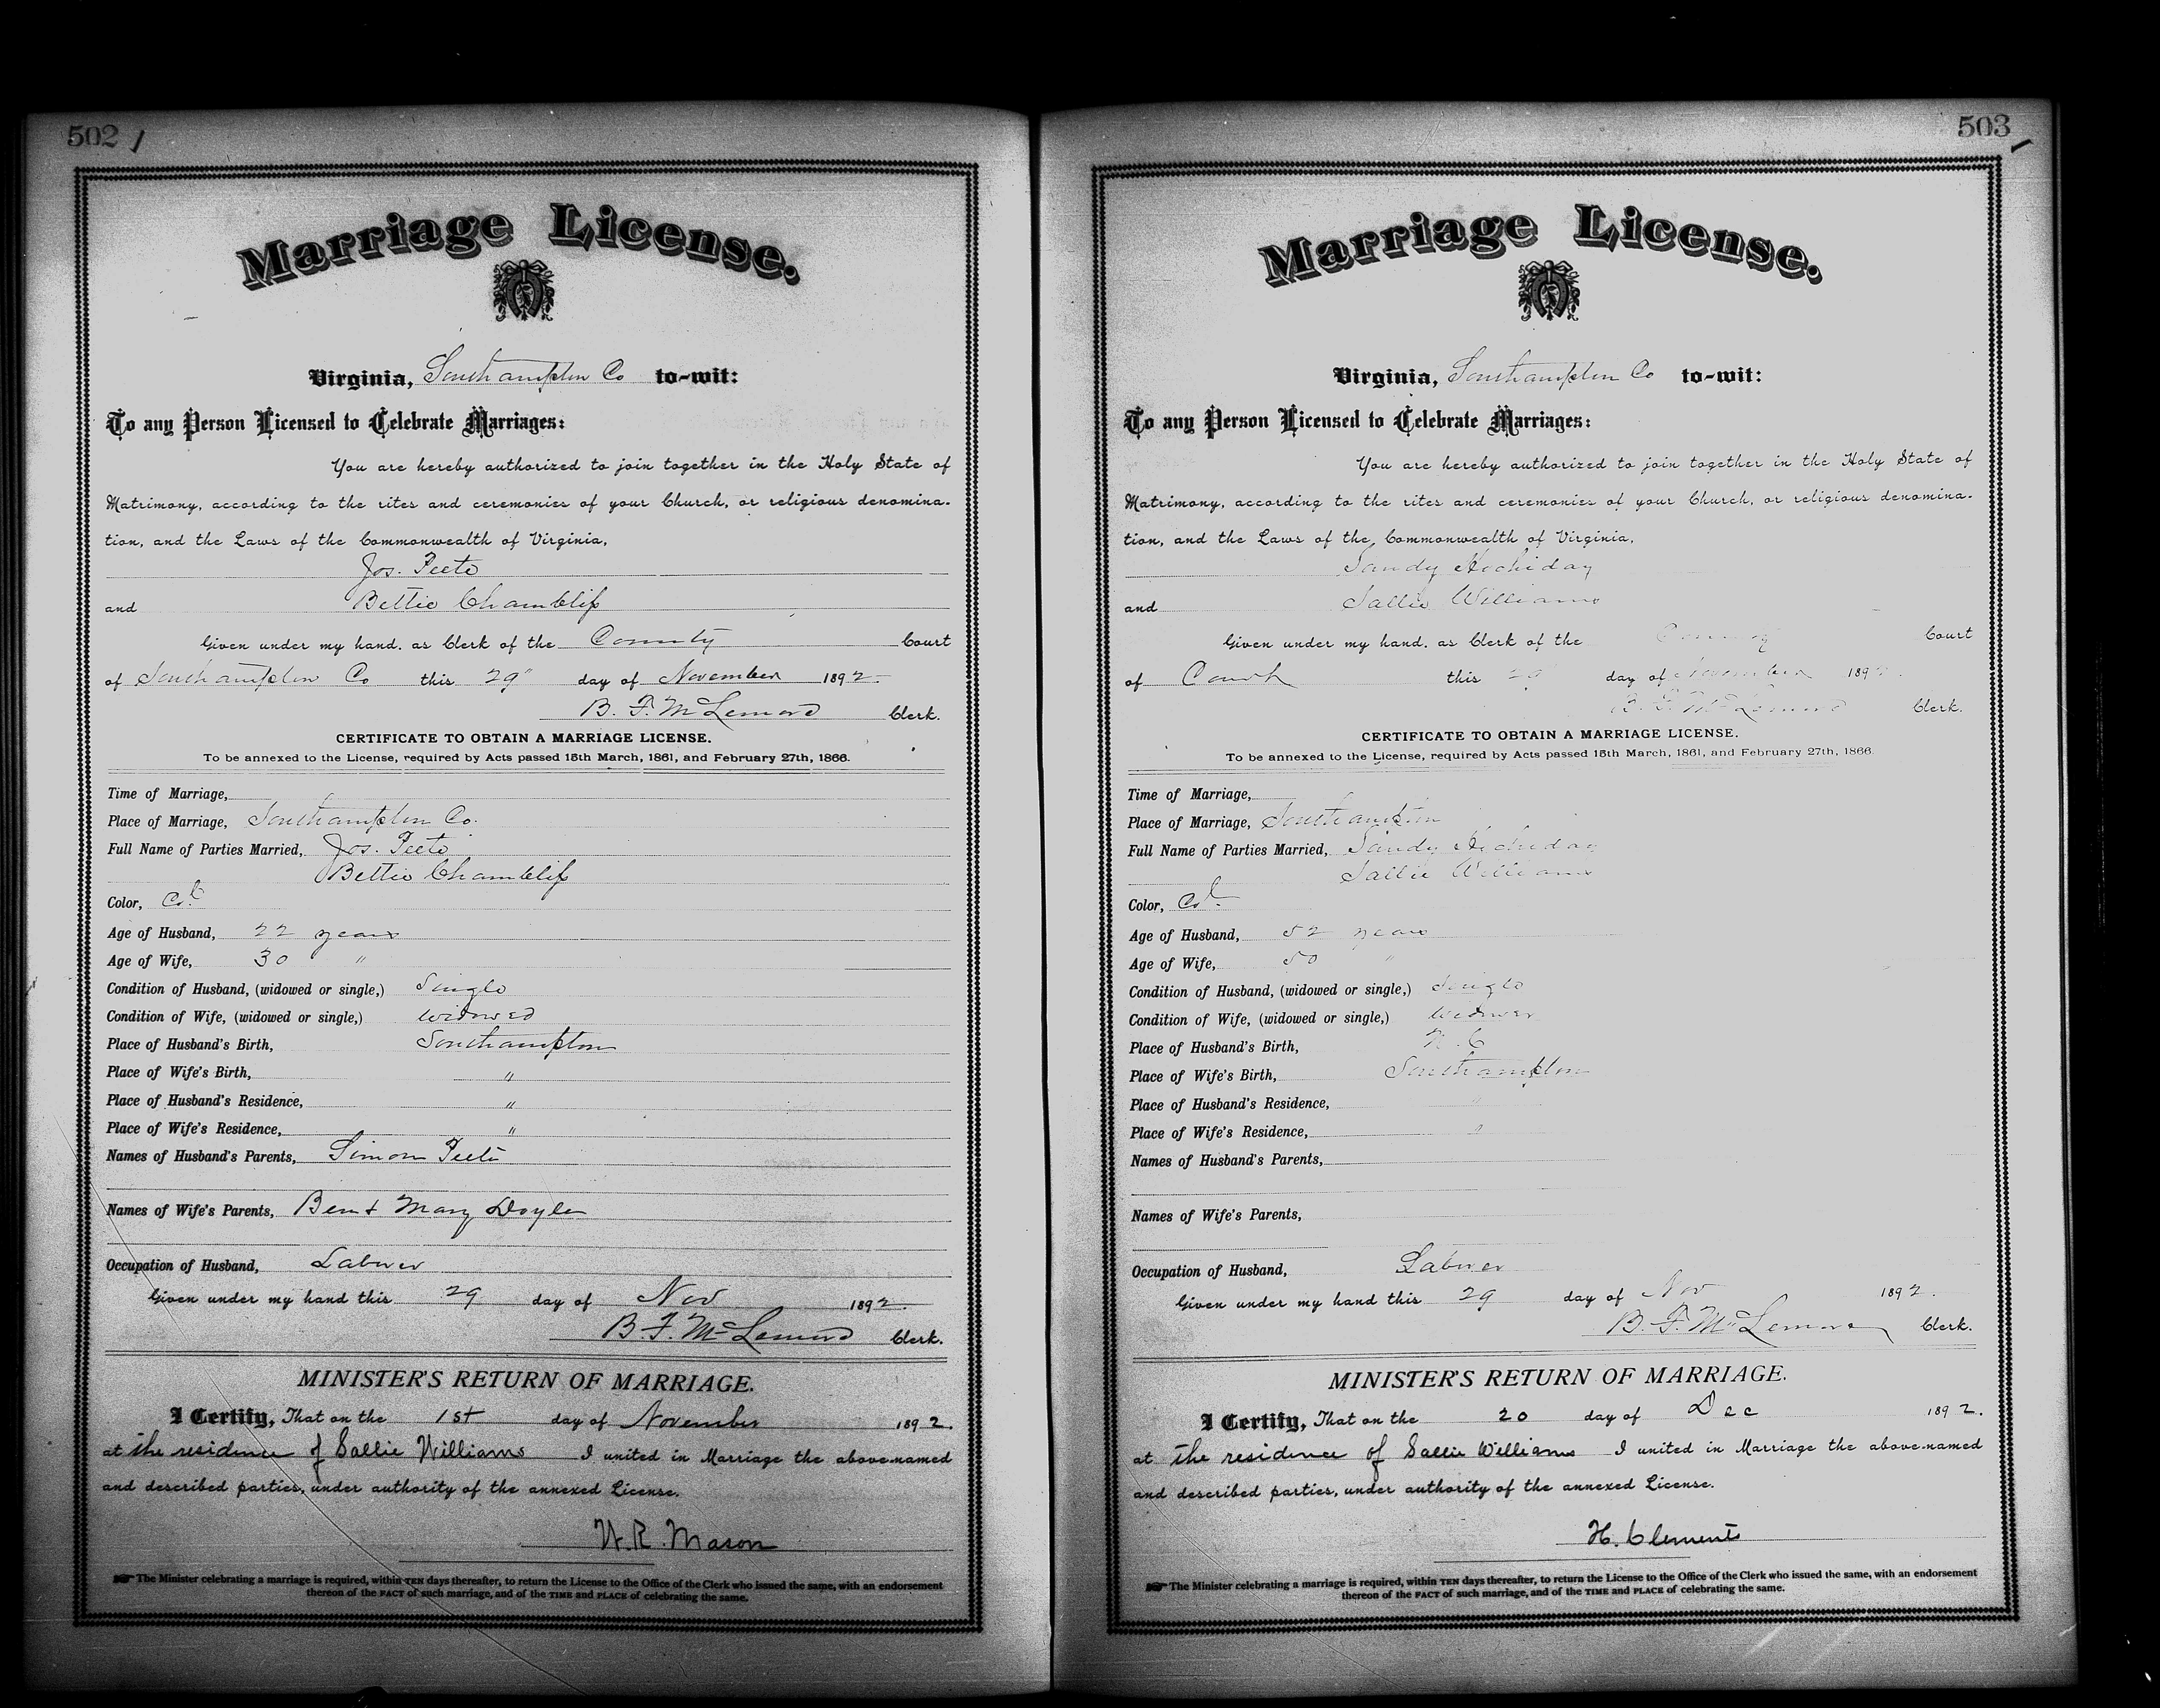 502
Marriage License.
Virginia, Southampton Co to-wit:
To any Person Licensed to Celebrate Marriages:
You are hereby authorized to join together in the Holy State of
Matrimony, according to the rites and ceremonies of your Church, or religious denomina-
tion, and the Laws of the Commonwealth of Virginia,
Jos. Peete
and Bettie Chambliss
Given under my hand, as Clerk of the County Court
of Southampton Co this 29" day of November 1892
B. F. McLemore Clerk.
CERTIFICATE TO OBTAIN A MARRIAGE LICENSE.
To be annexed to the License, required by Acts passed 15th March, 1861, and February 27th, 1866.
Time of Marriage,
Place of Marriage, Southampton Co.
Full Name of Parties Married, Jos. Peete
Bettie Chambliss
Color, Cold
Age of Husband, 22 years
Age of Wife, 30 "
Condition of Husband, (widowed or single,) Single
Condition of Wife, (widowed or single,) widowed
Place of Husband's Birth, Southampton
Place of Wife's Birth, "
Place of Husband's Residence, "
Place of Wife's Residence, "
Names of Husband's Parents, Simon Peete
Names of Wife's Parents, Ben & Mary Doyle
Occupation of Husband, Laborer
Given under my hand this 29 day of Nov 1892.
B. F. McLemore Clerk.
MINISTER'S RETURN OF MARRIAGE.
I Certify, That on the 1st day of November 1892.
at the residence of Sallie Williams I united in Marriage the above-named
and described parties, under authority of the annexed License.
W. R. Mason
The Minister celebrating a marriage is required, within TEN days thereafter, to return the License to the Office of the Clerk who issued the same, with an endorsement
thereof of the FACT of such marriage, and of the TIME and PLACE of celebrating the same.
503
Marriage License.
Virginia, Southampton Co to-wit:
To any Person Licensed to Celebrate Marriages:
You are hereby authorized to join together in the Holy State of
Matrimony, according to the rites and ceremonies of your Church, or religious denomina-
tion, and the Laws of the Commonwealth of Virginia,
Sandy
and Sallie Williams
Given under my hand, as Clerk of the County Court
of this 29 day of November 1892.
B. F. McLemore Clerk.
CERTIFICATE TO OBTAIN A MARRIAGE LICENSE.
To be annexed to the License, required by Acts passed 15th March, 1861, and February 27th, 1866.
Time of Marriage,
Place of Marriage, Southampton
Full Name of Parties Married, Sandy
Sallie Williams
Color, Cold
Age of Husband, 52 years
Age of Wife, 50 "
Condition of Husband, (widowed or single,) Single
Condition of Wife, (widowed or single,)
Place of Husband's Birth, N.C
Place of Wife's Birth, Southampton
Place of Husband's Residence, "
Place of Wife's Residence, "
Names of Husband's Parents,
Names of Wife's Parents,
Occupation of Husband, Laborer
Given under my hand this 29 day of Nov 1892.
B. F. McLemore Clerk.
MINISTER'S RETURN OF MARRIAGE.
I Certify, That on the 20 day of Dec 1892.
at the residence of Sallie Williams I united in Marriage the above-named
and described parties, under authority of the annexed License.
H. Clements
The Minister celebrating a marriage is required, within TEN days thereafter, to return the License to the Office of the Clerk who issued the same, with an endorsement
thereon of the FACT of such marriage, and of the TIME and PLACE of celebrating the same.